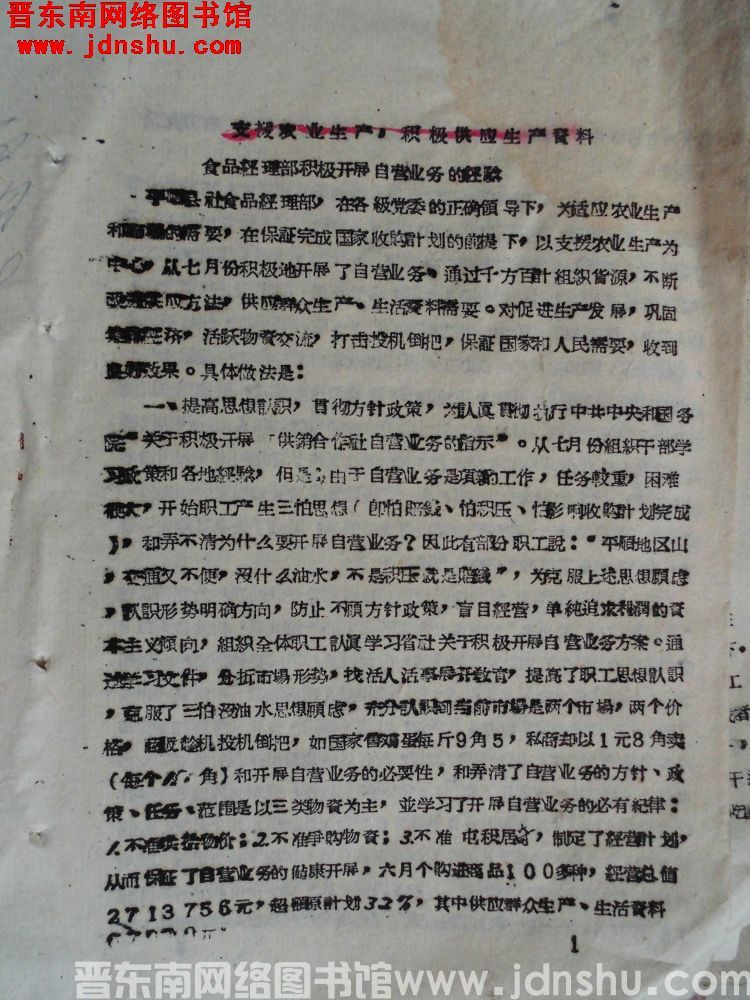 晋东南网络图书馆
www.jdnshu.com
支援农业生产，积极供应生产資料
食品經理部积极开展自营业务的經驗
平順县社食品經理部，在各級党委的正确領导下，为适应农业生产
和市場的需要，在保証完成国家收购計划的前提下，以支援农业生产为
中心，从七月份积极地开展了自营业务、通过千方百計組織貨源，不断
供应方法，供应群众生产、生活資料需要。对促进生产发展，巩固
經济，活跃物資交流，打击投机倒把，保証国家和人民需要，收到
良好效果。具体做法是：
一、提高思想認識，貫彻方針政策，为認眞貫彻执行中共中央和国务
院"关于积极开展「供銷合作社自营业务的指示"。从七月份組織干部学
习政策和各地經驗，但是；由于自营业务是項新的工作，任务較重，困难
很大，开始职工产生三怕思想（即怕賠錢、怕积压、怕影响收购計划完成
），和弄不清为什么要开展自营业务？因此有部份职工說："平順地区山
，交通又不便，沒什么油水，不是积压就是賠錢"，为克服上述思想顧虑
，認識形势明确方向，防止不顧方針政策，盲目經营，单純追求利潤的資
本主义傾向，組織全体职工認眞学习省社关于积极开展自营业务方案。通
过学习文件，分折市場形势，找活人活事展开敎育，提高了职工思想認識
，克服了三怕沒油水思想顧虑，充分認識到当前市場是两个市場，两个价
格，趁机投机倒把，如国家售鸡蛋每斤9角5，私商却以1元8角卖
（每个 角）和开展自营业务的必要性，和弄清了自营业务的方針、政
策、任务、范围是以三类物資为主，並学习了开展自营业务的必有紀律：
1.不准哄抬物价；2.不准爭购物資；3.不准屯积居奇，制定了經营計划，
从而保証了自营业务的健康开展，六月个购进商品100多种，經营总值
2713756元，超額原計划32%，其中供应群众生产、生活資料
1
晋东南网络图书馆www.jdnshu.com